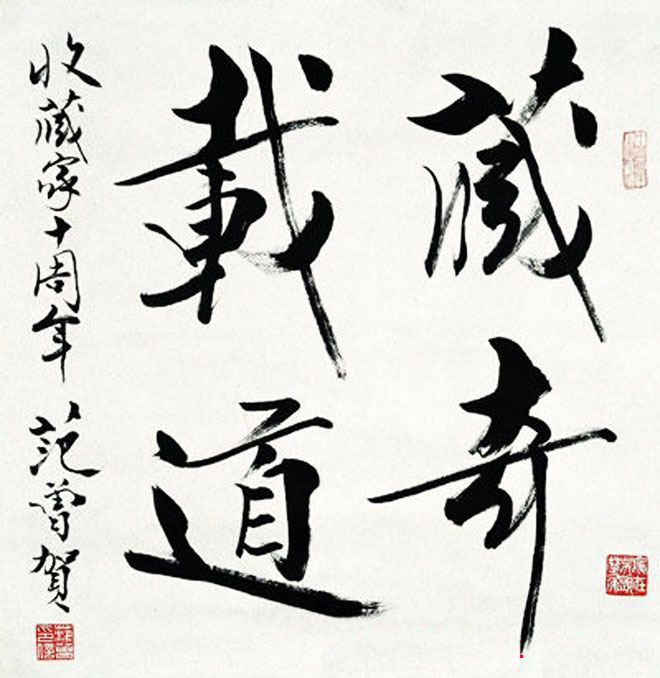 藏奇
載道
收藏家十周年 范曾賀